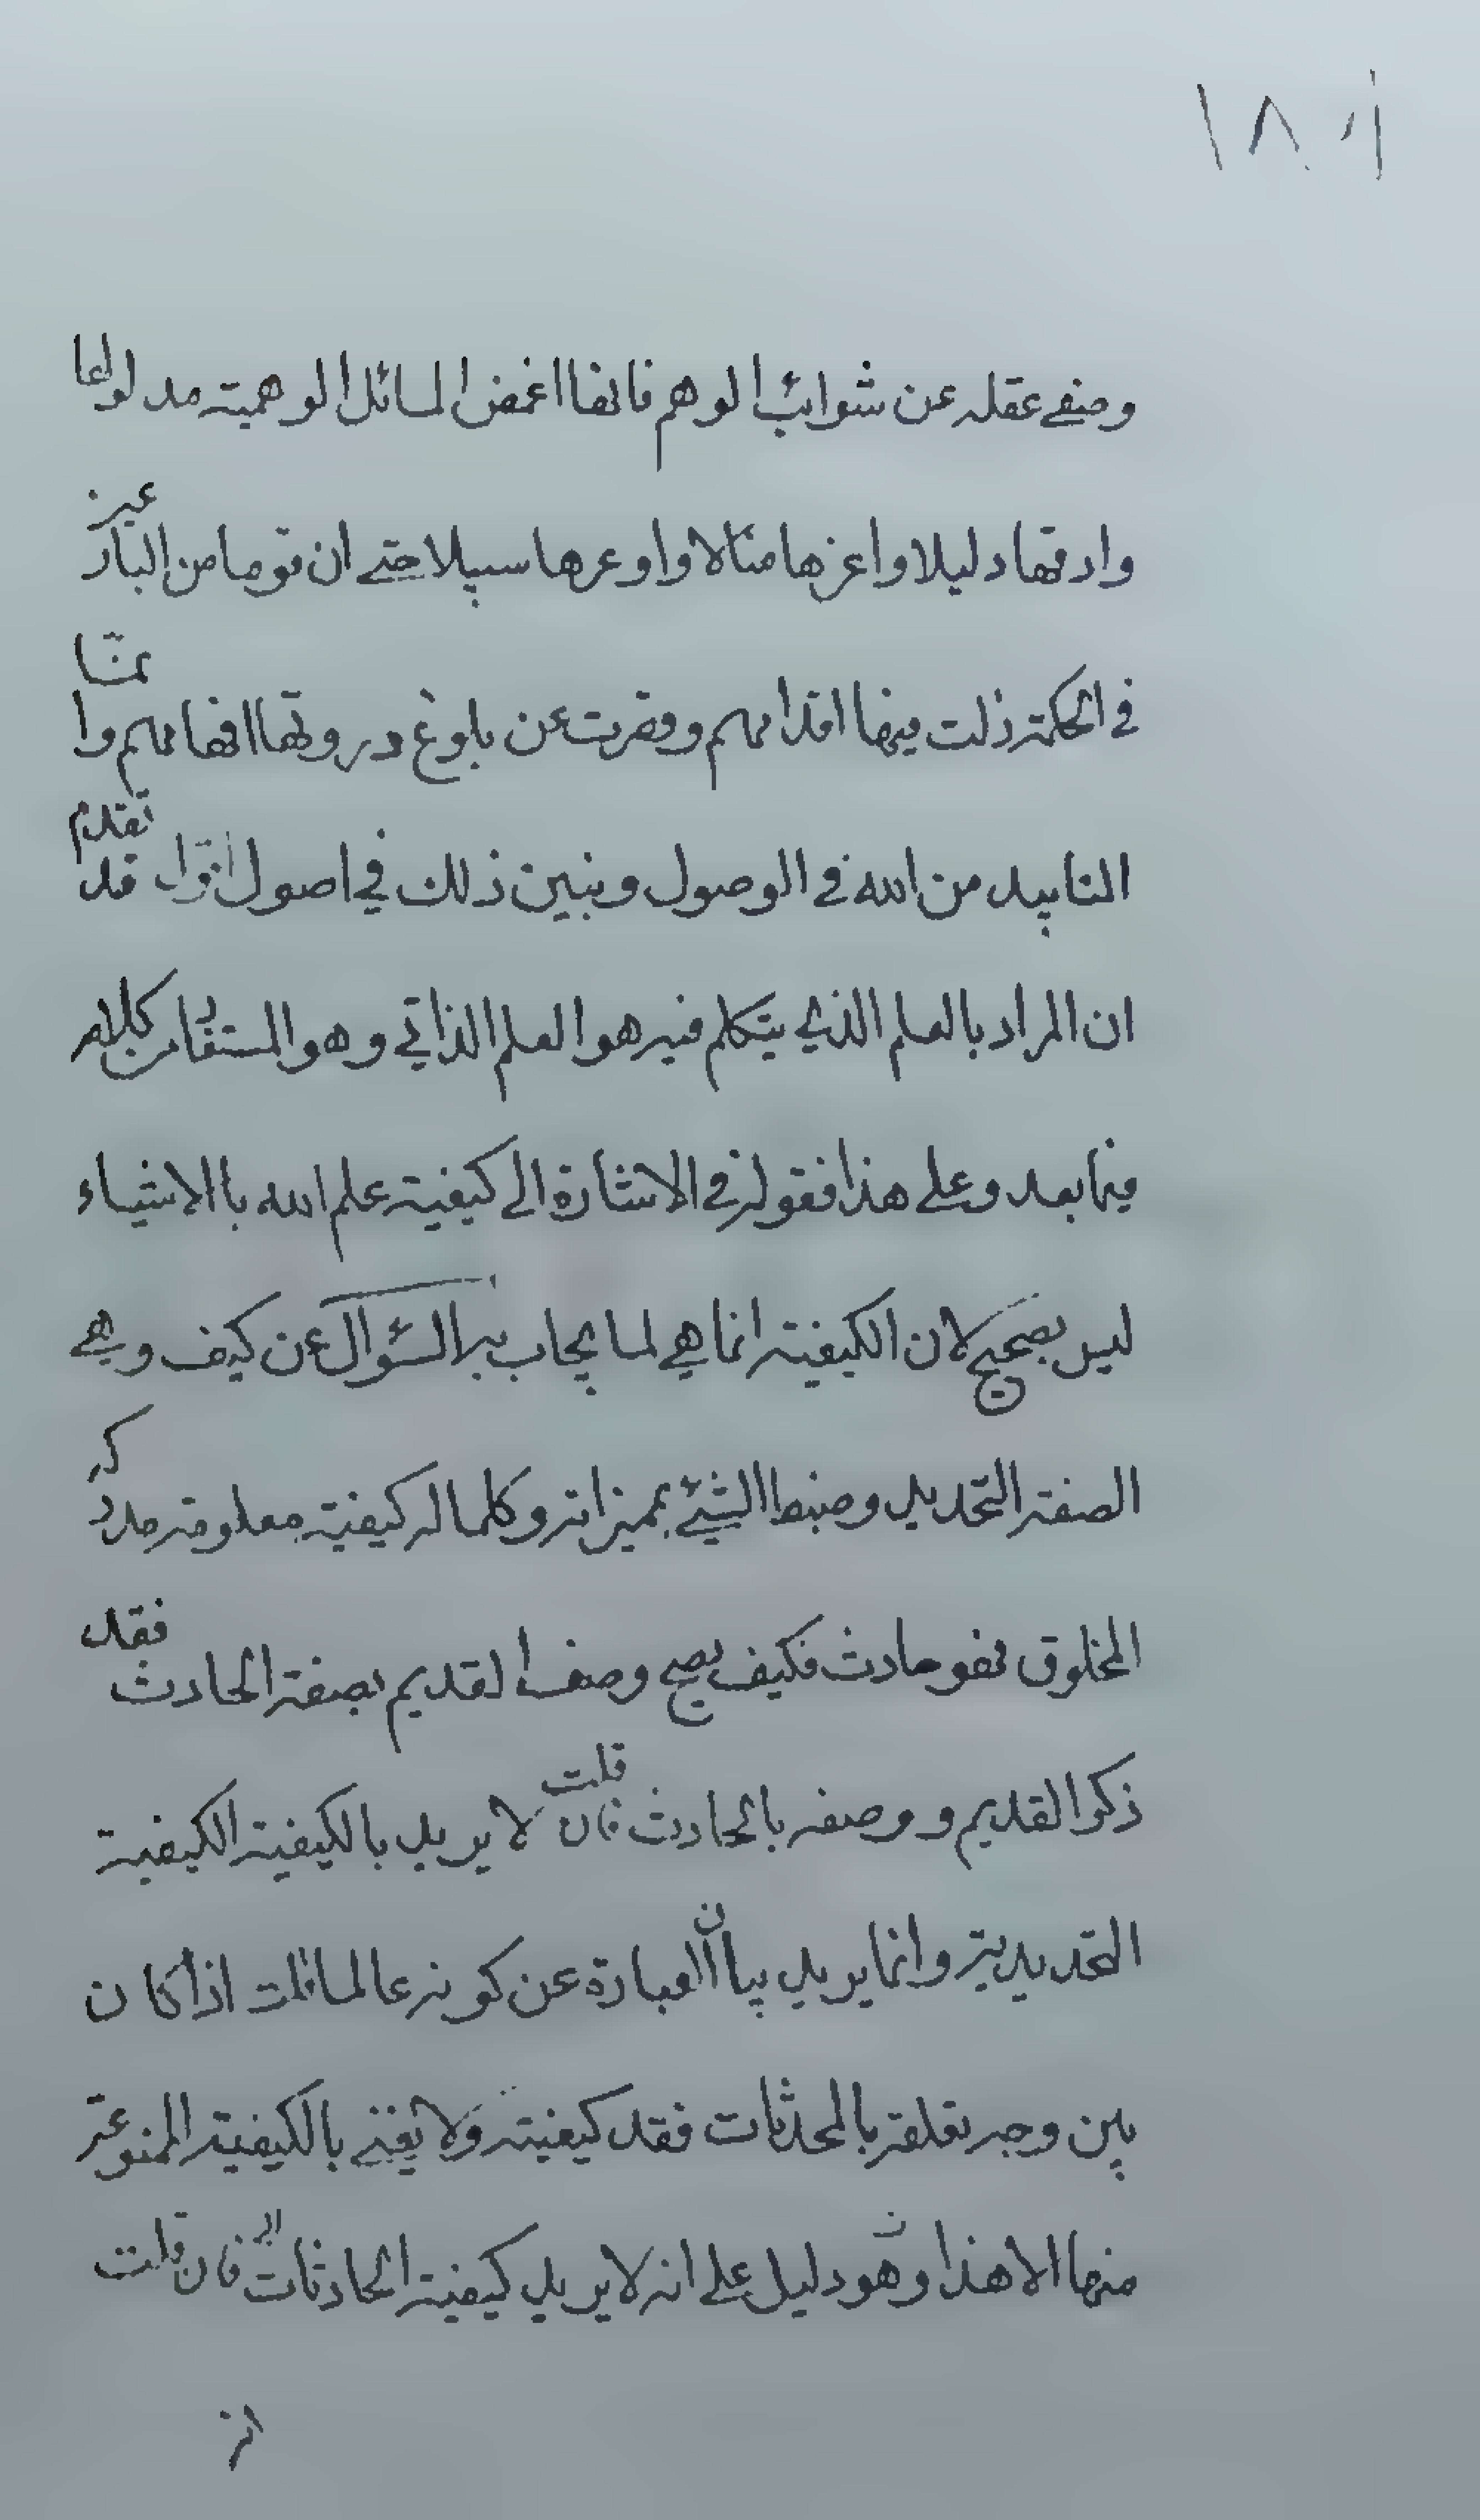 وصفي عقله عن شوائب الوهم فانها اغمض المسائل الوهمية مدلولها
وادقها دليلا واعزها منالا واوعرها سبيلا حتى ان قوما من البارزين
في الحكمة زلت فيها اقدامهم وقصرت عن بلوغ دروتها افهامهم وانما
التاييد من الله في الوصول ونبين ذلك في اصول اقول قد تقدم
ان المراد بالعلم الذي يتكلم فيه هو العلم الذاتي وهو المستفاد من كلامه
فيما بعد وعلى هذا فقوله في الاشارة الى كيفية علم الله بالاشياء
ليس بصحيح لان الكيفية انما هي لما يجاب به السؤال عن كيف وهي
الصفة التحديد وضبط الشيء بمميزاته وكلما له كيفية معلومة مدركة
المخلوق فهو حادث فكيف يصح وصف القديم بصفة الحادث فقد
ذكر القديم و وصفه بالحادث فان قلت لا يريد بالكيفية الكيفية
التحديدية وانما يريد بيان العبارة عن كونه عالما قلت اذا كان
بين وجه تعلقه بالمحدثات فقد كيفيته ولا يعني بالكيفية الممنوعة
منها الا هذا وهو دليل على انه لا يريد كيفية الحادثات فان قلت
انه